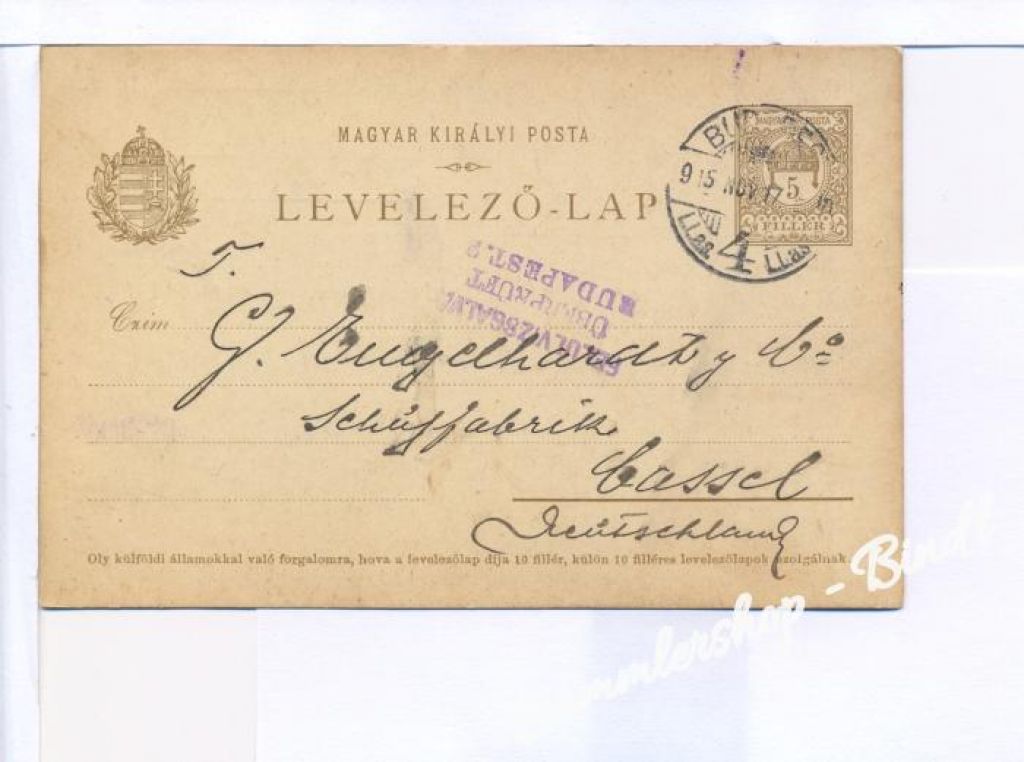 MAGYAR KIRÁLYI POSTA
LEVELEZŐ-LAP
MAGYAR POSTA
5
FILLÉR
BUDAPEST
915 NOV 17
4
T.
Czim
G. Engelhardt y Co
Schuhfabrik
Cassel
Deutschland
FELÜLVIZSGÁLVA
ÜBERPRÜFT
BUDAPEST. 2
Oly külföldi államokkal való forgalomra, hova a levelezőlap díja 10 fillér, külön 10 filléres levelezőlapok szolgálnak
mmlershop - Bindl